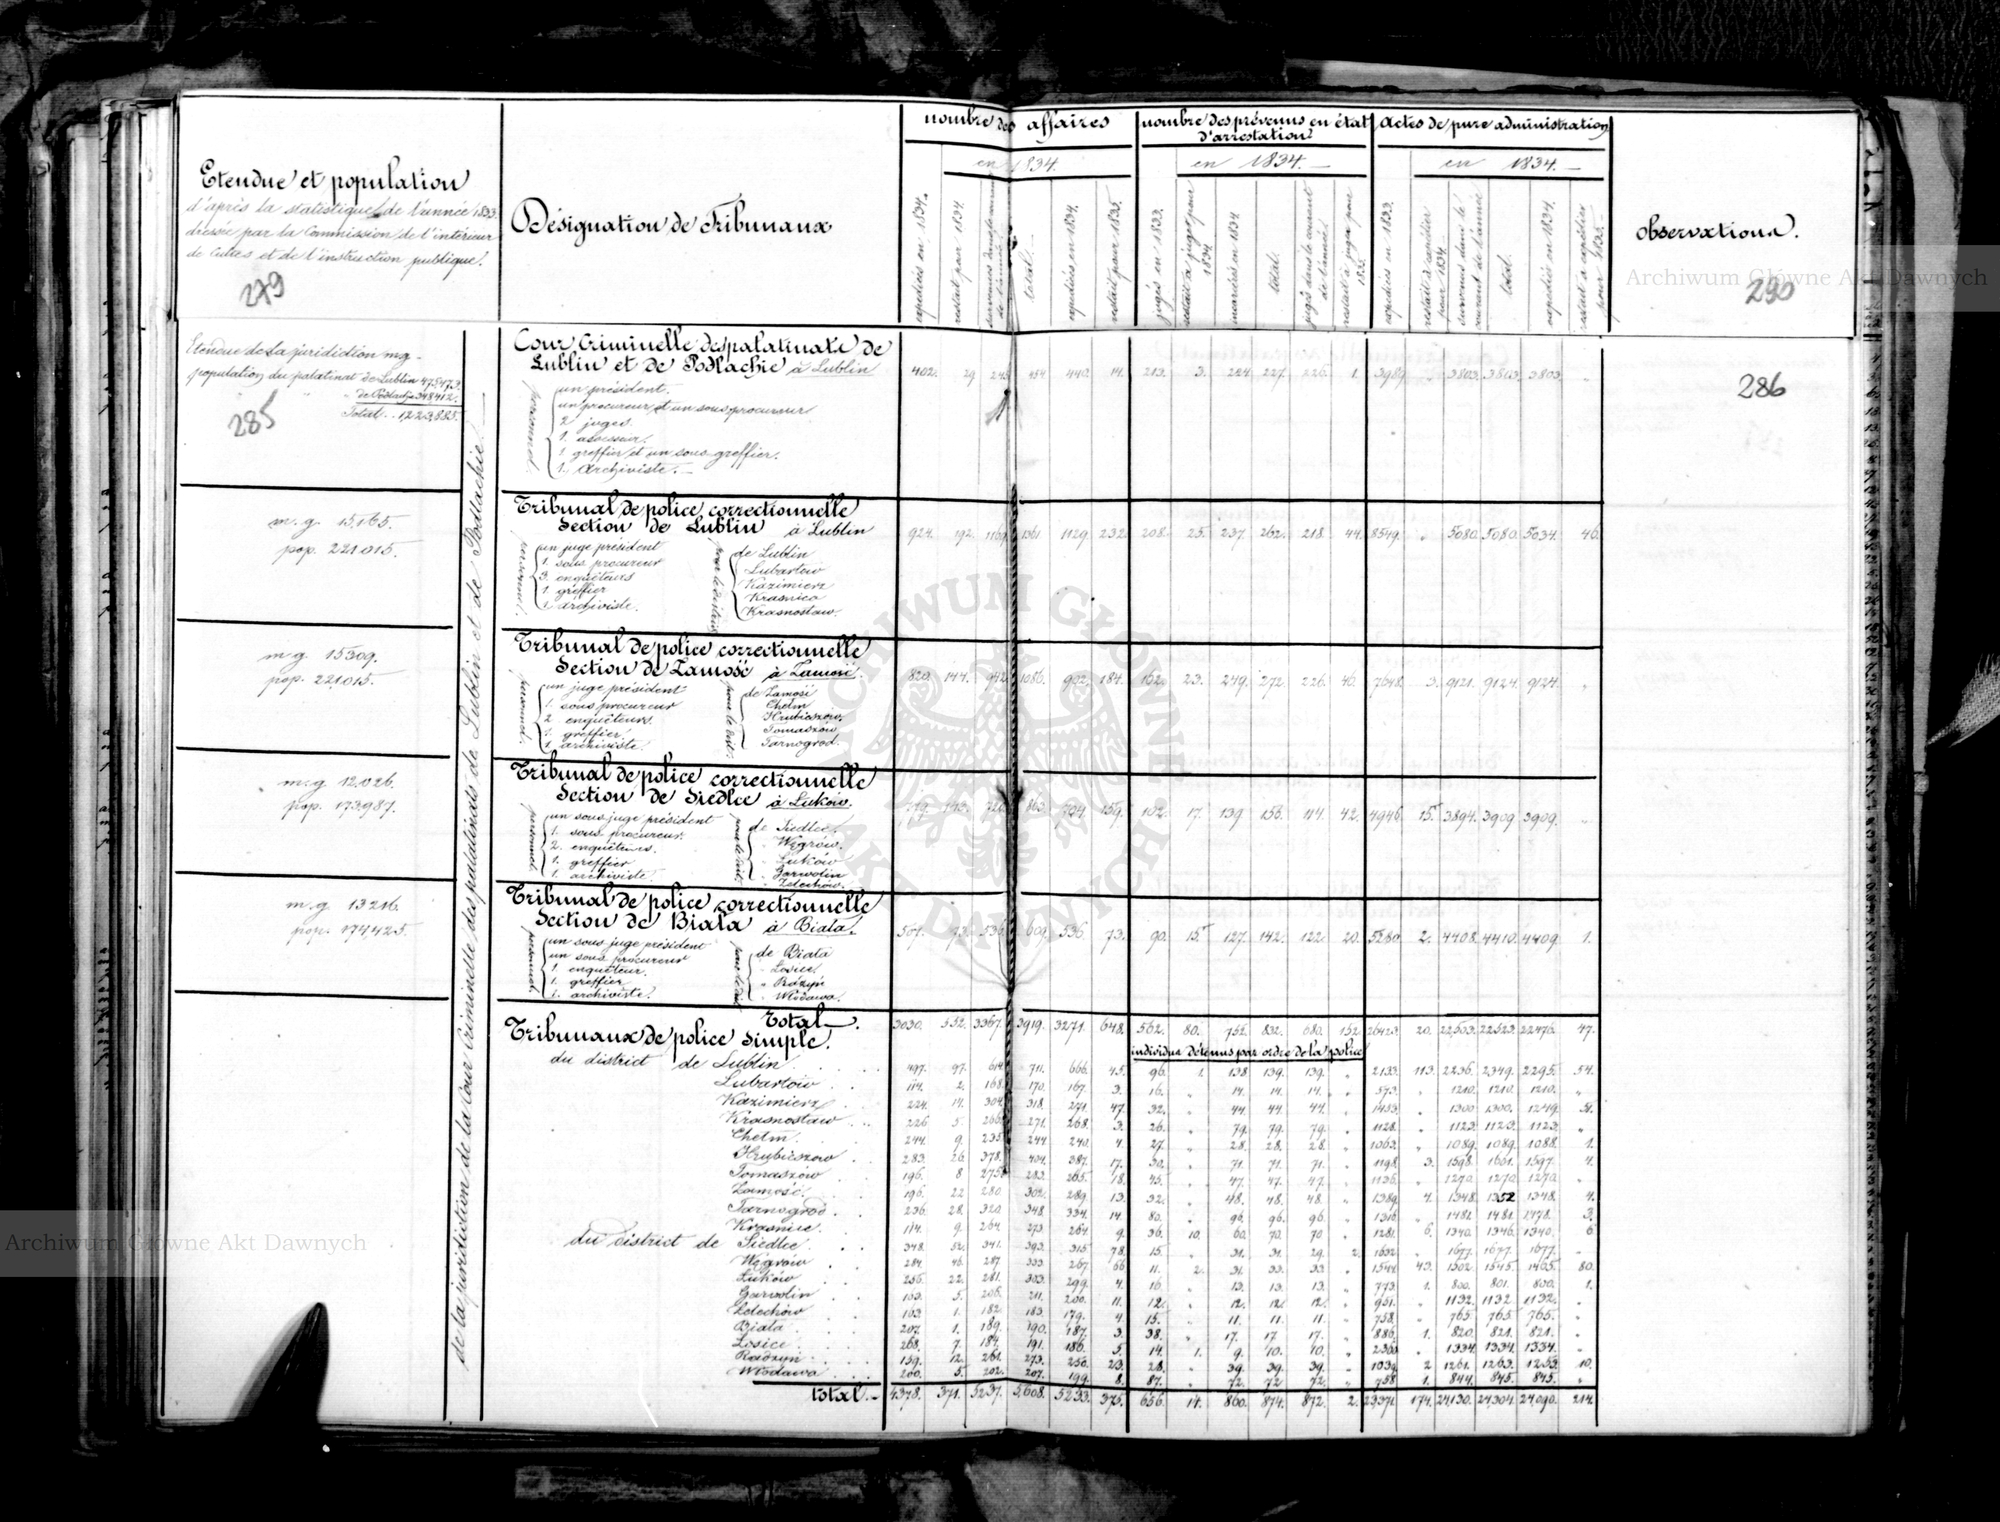 Etendue et population
d'après la statistique de l'année 1833
dressée par la Commission de l'intérieur
de Cultes et de l'instruction publique.
279
Désignation de Tribunaux
nombre des affaires
en 1834.
expediés en 1834.
restait pour 1834.
total.
expediés en 1834.
restait pour 1835.
nombre des prévenus en état
d'arrestation
en 1834.
jugés en 1833.
restait à juger pour
1834
incarcérés en 1834
total.
jugés dans le courant
de l'année.
restait à juger pour
1835.
Actes de pure administration
en 1834.
expediés en 1833.
restait à expédier
pour 1834.
survenus dans le
courant de l'année
total.
expediés en 1834.
restait à expédier
pour 1835.
observations.
290
Archiwum Główne Akt Dawnych
286
Etendue de la juridiction m.g.
population du palatinat de Lublin
de Podlachie 348412.
Total
285
de la juridiction de la Cour Criminelle des palatinats de Lublin et de Podlachie
Cour Criminelle des palatinats de
Lublin et de Podlachie à Lublin
402. 29 440. 14. 213. 3. 224. 227. 226. 1. 3989. 3803. 3803. 3803.
personnel
un président.
un procureur et un sous procureur
2 juges.
1. assesseur.
1 greffier et un sous greffier.
1. Archiviste.
m.g. 15,165.
pop. 221,015.
Tribunal de police correctionnelle
Section de Lublin à Lublin
924. 192. 1169. 1361. 1129. 232. 208. 25. 237. 262. 218. 44. 8549. 5080. 5080. 5034. 46.
personnel
un juge président
1. sous procureur
3. enquêteurs
1. greffier
1. archiviste.
de Lublin
Lubartow
Kazimierz
Krasnico
Krasnostaw.
m.g. 15309.
pop. 221,015.
Tribunal de police correctionnelle
Section de Zamość à Zamość.
820. 144. 942. 1086. 902. 184. 162. 23. 249. 272. 226. 46. 7648. 3. 9121. 9124. 9124.
personnel
un juge président
1. sous procureur
2 enquêteurs.
1. greffier
1 archiviste.
de Zamość
Chelm
Hrubieszów
Tomaszów
Tarnogrod.
m.g. 12,026.
pop. 173,987.
Tribunal de police correctionnelle
Section de Siedlce à Luków.
704. 159. 102. 17. 139 156. 114. 42. 4946. 15. 3894. 3909. 3909.
personnel
un sous juge président
1. sous procureur.
2. enquêteurs.
1. greffier
1. archiviste.
de Siedlce.
Węgrów.
Luków
Garwolin
Zelechów.
m.g. 13216.
pop. 174,425.
Tribunal de police correctionnelle
Section de Biała à Biała.
73. 536. 609. 536 73. 90. 15. 127. 142. 122. 20. 5280. 2. 4408. 4410. 4409. 1.
personnel
un sous juge président
un sous procureur
1. enquêteur.
1. greffier
1. archiviste.
de Biała
Losice
Radzyń
Włodawa.
Total. 3030. 552. 3367. 3919. 3271. 648. 562. 80. 752. 832. 680. 152. 26423. 20. 22,503. 22523. 22476. 47.
Tribunaux de police simple.
individus détenus par ordre de la police
du district de Lublin 497. 97. 614. 711. 666. 45. 96. 1. 138 139. 139. 2133. 113. 2236. 2349. 2295. 54.
Lubartów 114. 2. 168. 170. 167. 3. 16. 14. 14. 14. 573. 1210. 1210. 1210.
Kazimierz 224. 14. 304. 318. 271. 47. 32. 44. 44. 44. 1300. 1300. 1249. 51.
Krasnostaw 226 5. 266. 271. 268. 3. 26. 79. 79. 79. 1128. 1123. 1123. 1123.
Chelm 244. 9. 235. 244. 240. 4. 27. 28. 28. 28. 1063. 1089. 1089. 1088. 1.
Hrubieszów 283. 26. 378. 404. 387. 17. 30. 71. 71. 71. 1198. 3. 1598. 1601. 1597. 4.
Tomaszów 196. 8 275. 283. 265. 18. 45. 47. 47. 47. 1136. 1270. 1270. 1270.
Zamość 196. 22 280. 302. 289. 13. 32. 48. 48. 48. 1389. 4. 1348. 1352 1348. 4.
Tarnogrod 236. 28. 320. 348. 334. 14. 80. 96. 96. 96. 1316. 1481. 1481. 1478. 3.
Krasnice. 114. 9. 264. 273. 264. 9. 36. 10. 60. 70. 70 1281. 6. 1340. 1346. 1340. 6
du district de Siedlce 348. 52. 341. 393. 315 78. 15. 31. 31. 29. 2. 1632. 1677. 1677. 1677.
Węgrow 284. 46. 287. 333. 267 66 11. 2. 31. 33. 33 1544. 43. 1502. 1545. 1465. 80.
Luków 256. 22. 281. 303. 299. 4. 16 13. 13. 13. 773. 1. 800. 801. 800. 1.
Garwolin 163. 5. 206. 211. 200. 11. 12. 12. 12. 12. 951. 1132. 1132 1132.
Zelechów 163. 1. 182. 183. 179. 4 15. 11. 11. 11. 758. 765. 765 765.
Biała 207. 1. 189. 190. 187. 3. 38. 17. 17 17. 886. 1. 820. 821. 821.
Losice 268. 7. 184. 191. 186. 5. 14. 1. 9. 10. 10. 1334 1334. 1334.
Radzyn 159. 12. 261. 273. 250. 23. 28. 39. 39. 39. 1039. 2 1261. 1263. 1253. 10.
Włodawa 200. 5. 202. 207. 199. 8. 87. 72. 72 72. 758 1. 844. 845. 845.
total. 4378. 371. 5237. 5608. 5233. 375. 656. 14. 860. 874. 872. 2. 23,371. 174. 24,130. 24,304. 24,090. 214.
ARCHIWUM GŁÓWNE AKT DAWNYCH
Archiwum Główne Akt Dawnych